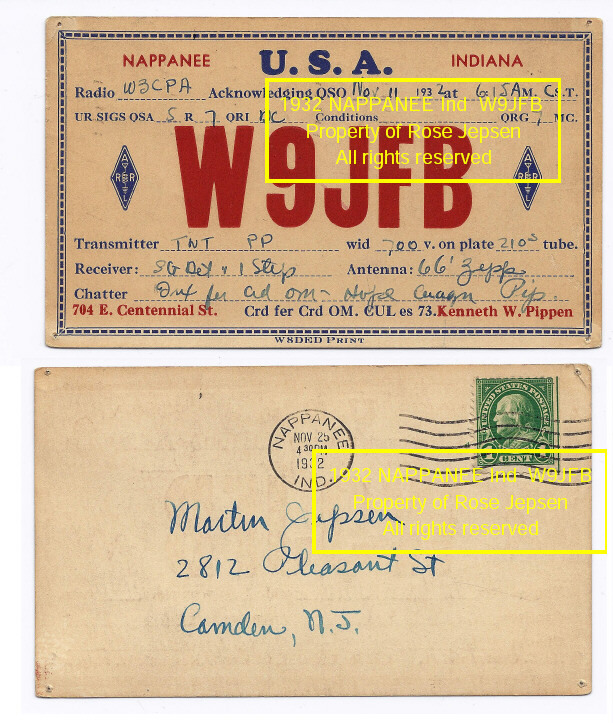 NAPPANEE U.S.A. INDIANA
Radio W3CPA Acknowledging QSO Nov 11 1932 at 6:15AM. CS.T.
UR SIGS QSA 5 R 7 QRI DC Conditions QRG 7 MC.
1932 NAPPANEE Ind W9JFB
Property of Rose Jepsen
All rights reserved
W9JFB
A
R R
L
A
R R
L
Transmitter TNT PP wid 700 v. on plate 210s tube.
Receiver: SG Det & 1 Step Antenna: 66' Zepp.
Chatter Tnx fer cd OM - Hope cuagn Pip.
704 E. Centennial St. Crd fer Crd OM. CUL es 73. Kenneth W. Pippen
W8DED PRINT
NAPPANEE
NOV 25
4 30 PM
1932
IND.
UNITED STATES POSTAGE
1 CENT 1
1932 NAPPANEE Ind W9JFB
Property of Rose Jepsen
All rights reserved
Martin Jepsen
2812 Pleasant St
Camden, N.J.